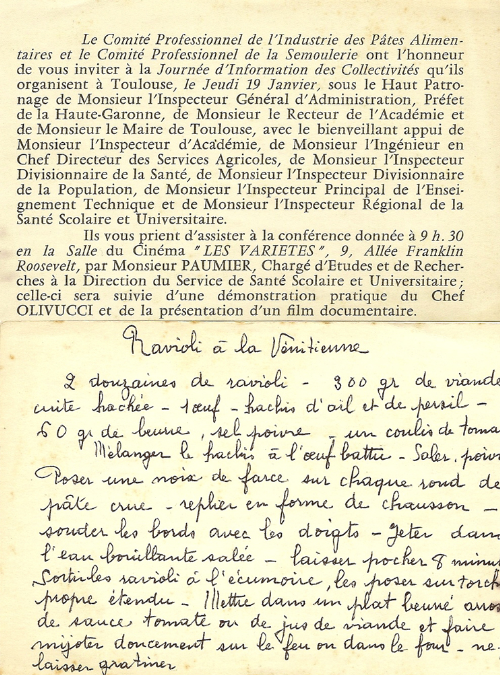 Le Comité Professionnel de l'Industrie des Pâtes Alimen-
taires et le Comité Professionnel de la Semoulerie ont l'honneur
de vous inviter à la Journée d'Information des Collectivités qu'ils
organisent à Toulouse, le Jeudi 19 Janvier, sous le Haut Patro-
nage de Monsieur l'Inspecteur Général d'Administration, Préfet
de la Haute-Garonne, de Monsieur le Recteur de l'Académie et
de Monsieur le Maire de Toulouse, avec le bienveillant appui de
Monsieur l'Inspecteur d'Académie, de Monsieur l'Ingénieur en
Chef Directeur des Services Agricoles, de Monsieur l'Inspecteur
Divisionnaire de la Santé, de Monsieur l'Inspecteur Divisionnaire
de la Population, de Monsieur l'Inspecteur Principal de l'Ensei-
gnement Technique et de Monsieur l'Inspecteur Régional de la
Santé Scolaire et Universitaire.
Ils vous prient d'assister à la conférence donnée à 9 h. 30
en la Salle du Cinéma "LES VARIETES", 9, Allée Franklin
Roosevelt, par Monsieur PAUMIER, Chargé d'Etudes et de Recher-
ches à la Direction du Service de Santé Scolaire et Universitaire ;
celle-ci sera suivie d'une démonstration pratique du Chef
OLIVUCCI et de la présentation d'un film documentaire.
Ravioli à la Vénitienne
2 douzaines de ravioli - 300 gr de viande
cuite hachée - 1 œuf - hachis d'ail et de persil -
60 gr de beurre, sel poivre - un coulis de toma
Mélanger le hachis à l'œuf battu - Saler, poivr
Poser une noix de farce sur chaque rond de
pâte crue - replier en forme de chausson -
souder les bords avec les doigts - Jeter dans
l'eau bouillante salée - laisser pocher 8 minut
Sortir les ravioli à l'écumoire, les poser sur torch
propre étendu - Mettre dans un plat beurré arros
de sauce tomate ou de jus de viande et faire
mijoter doucement sur le feu ou dans le four - ne
laisser gratiner